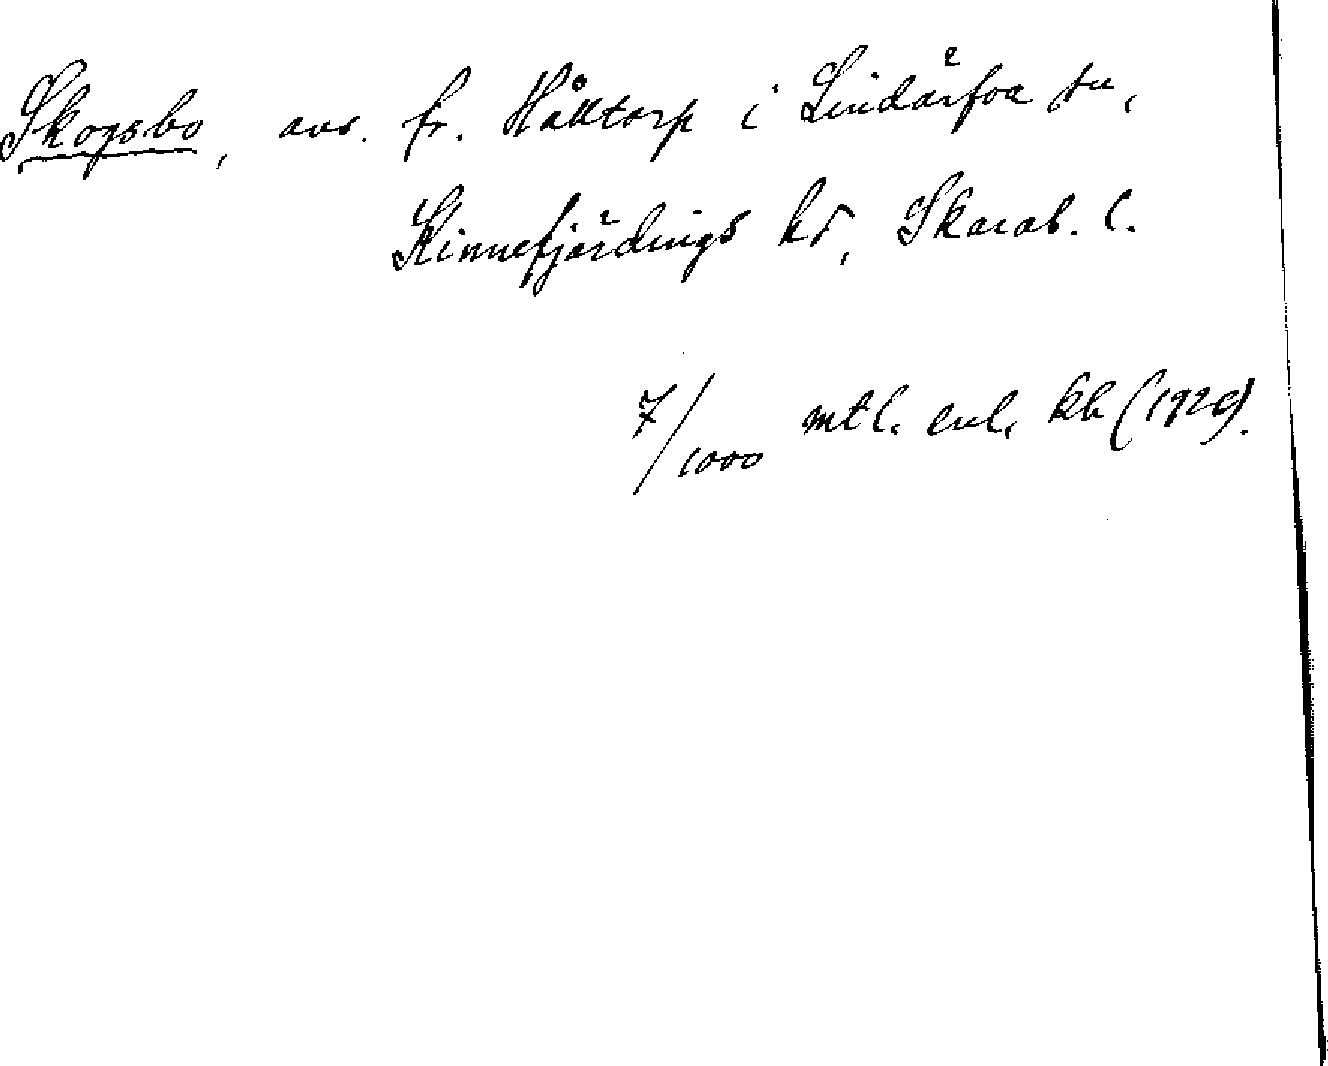 Skogsbo, avs. fr. Hålltorp i Lindärfva sn,
Kinnefjärdings hd, Skarab. l.
7/1000 mtl. enl. kb (1920).